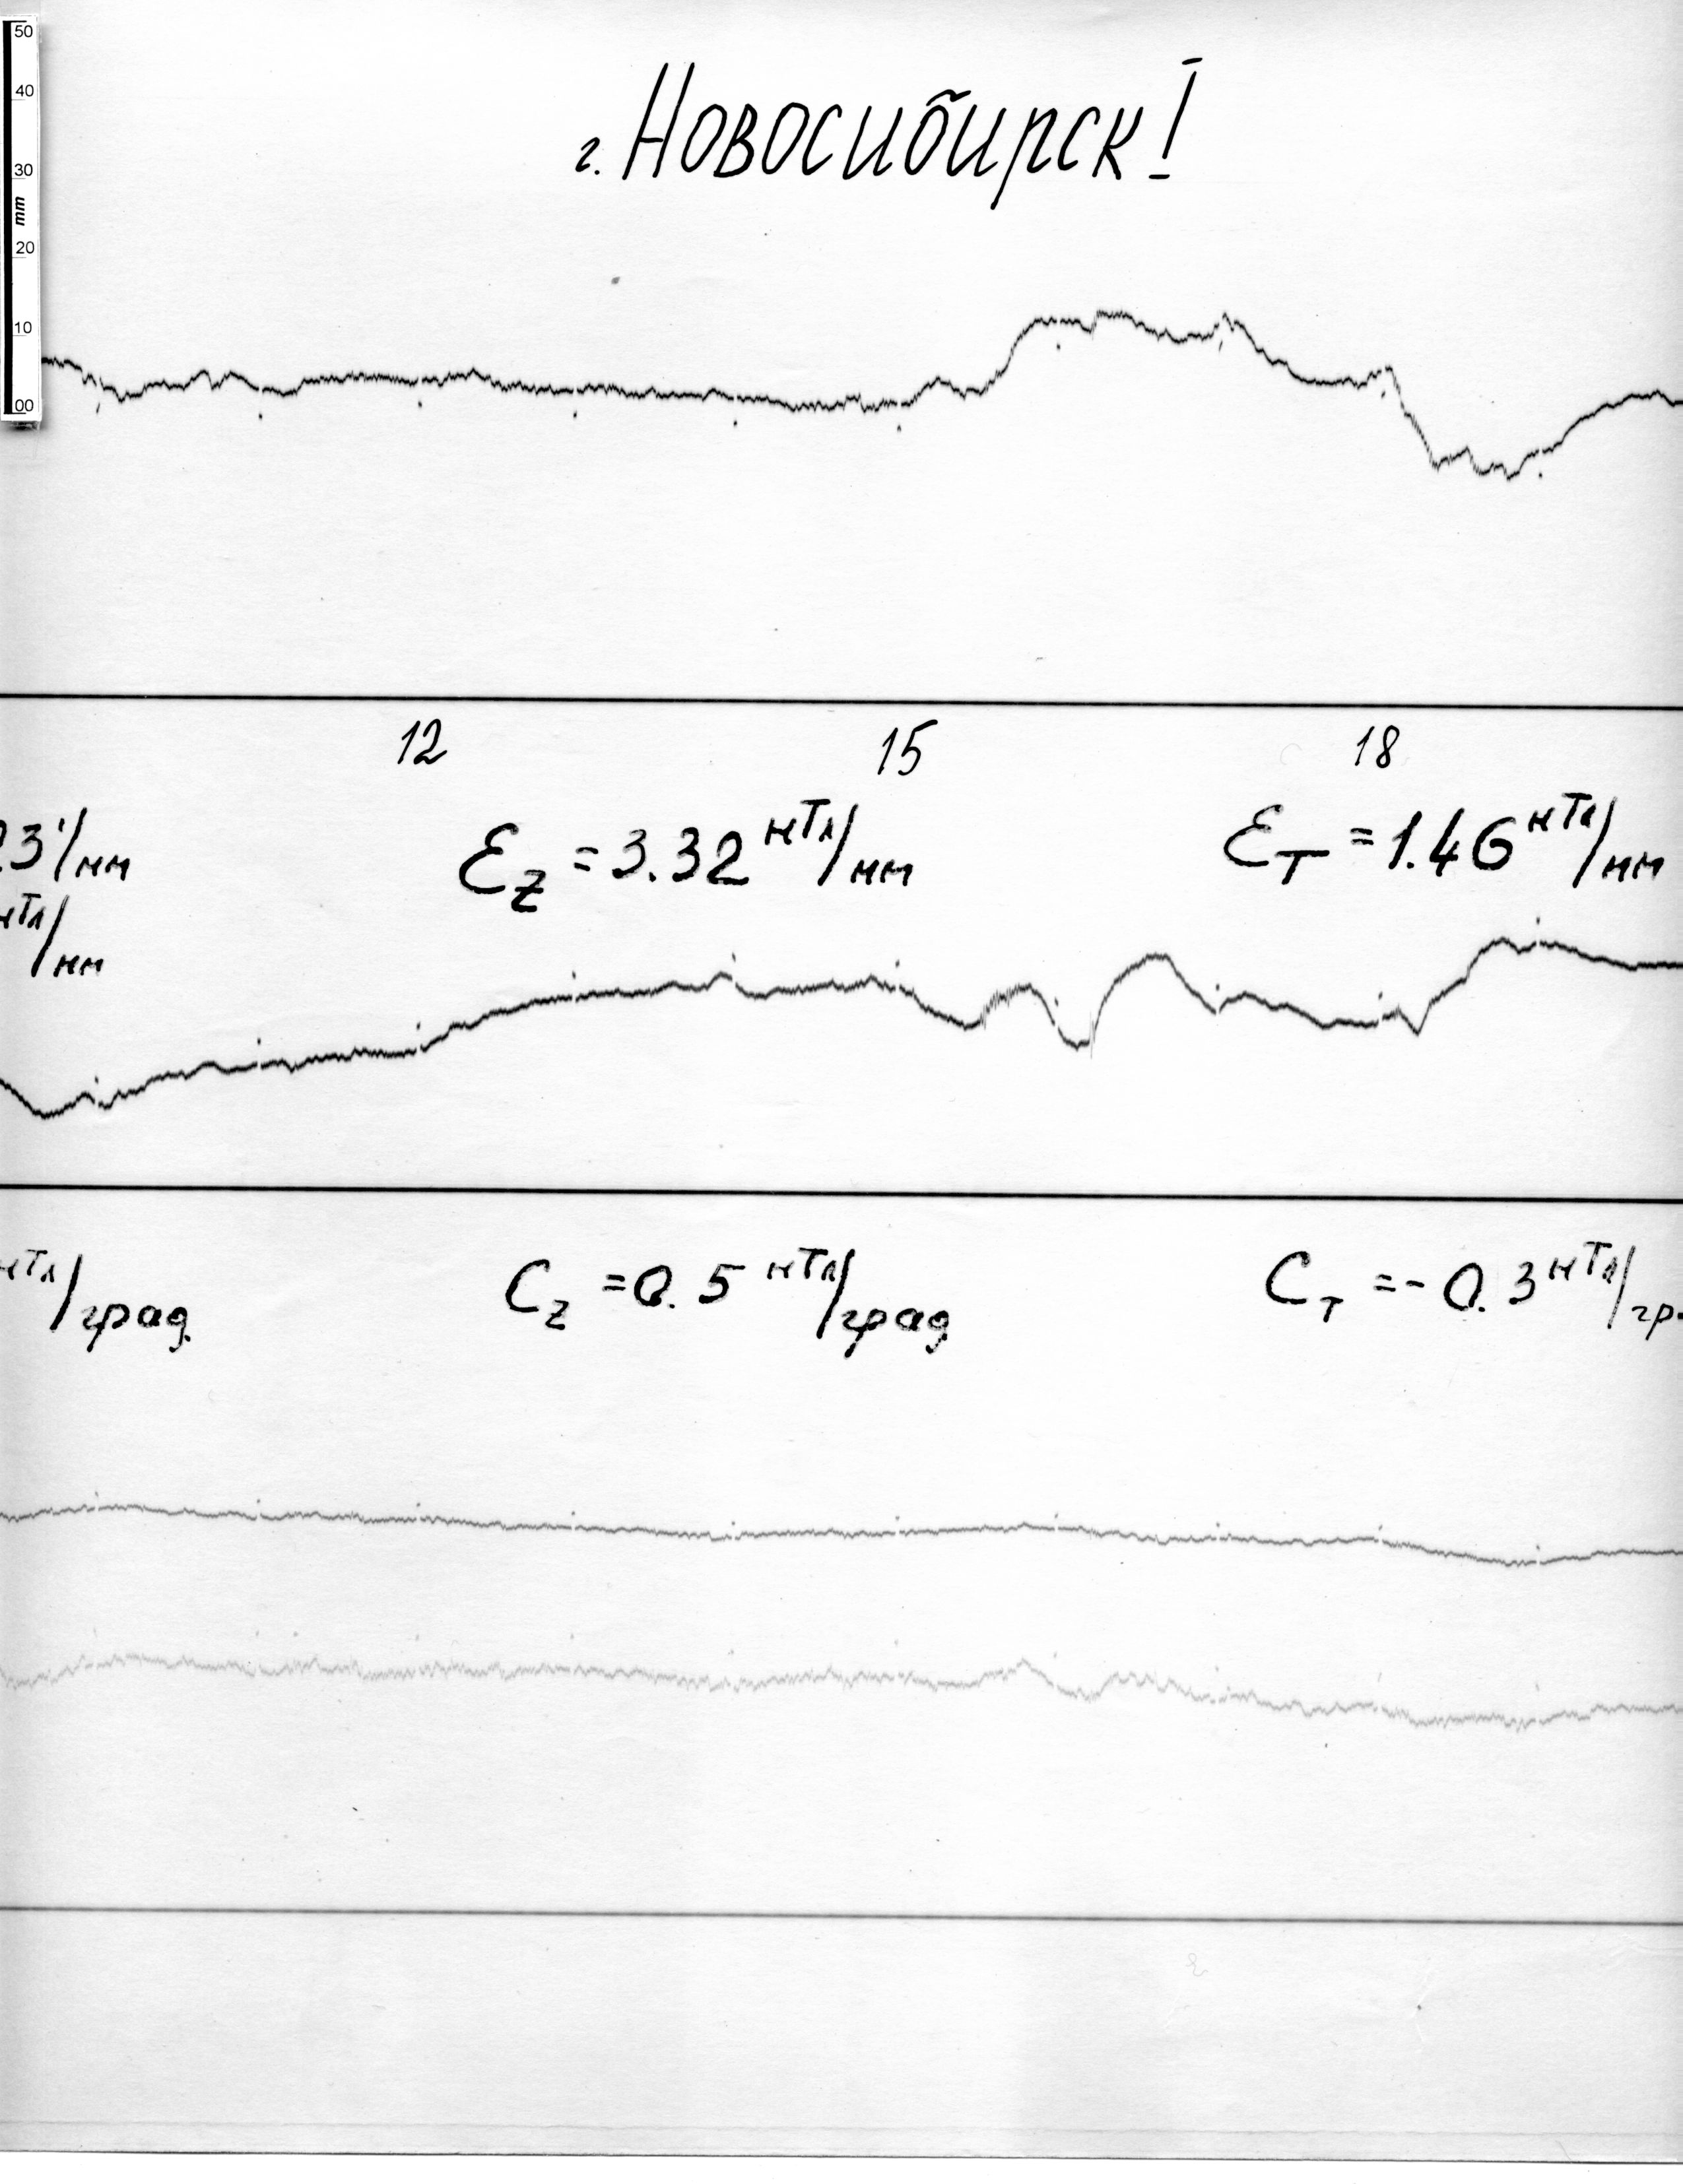 50
40
30
mm
20
10
00
г. Новосибирск!
12 15 18
23'/мм Ez = 3.32 нТл/мм ET = 1.46 нТл/мм
нТл/мм
нТл/град. Cz = 0.5 нТл/град CT = -0.3 нТл/гр